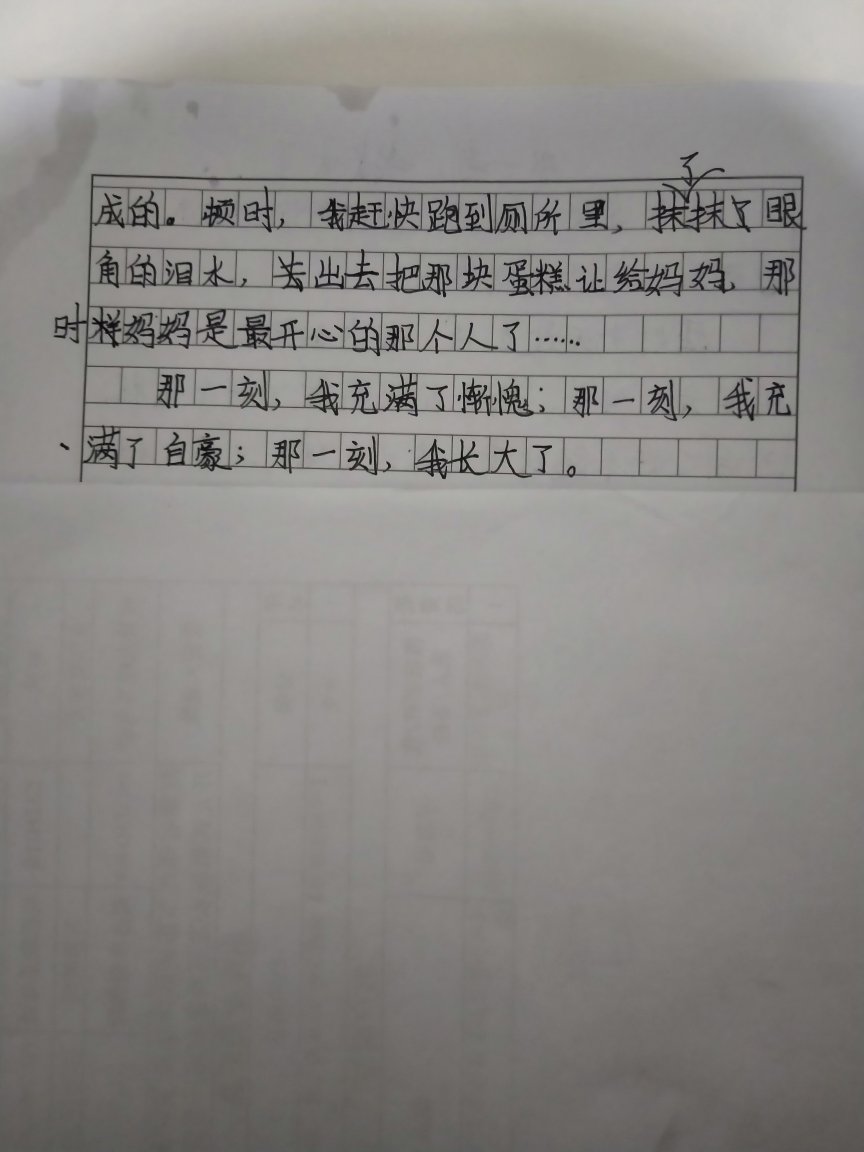 了
成的。顿时，我赶快跑到厕所里，抹抹了眼
角的泪水，去出去把那块蛋糕让给妈妈，那
时样妈妈是最开心的那个人了……
那一刻，我充满了惭愧；那一刻，我充
满了自豪；那一刻，我长大了。